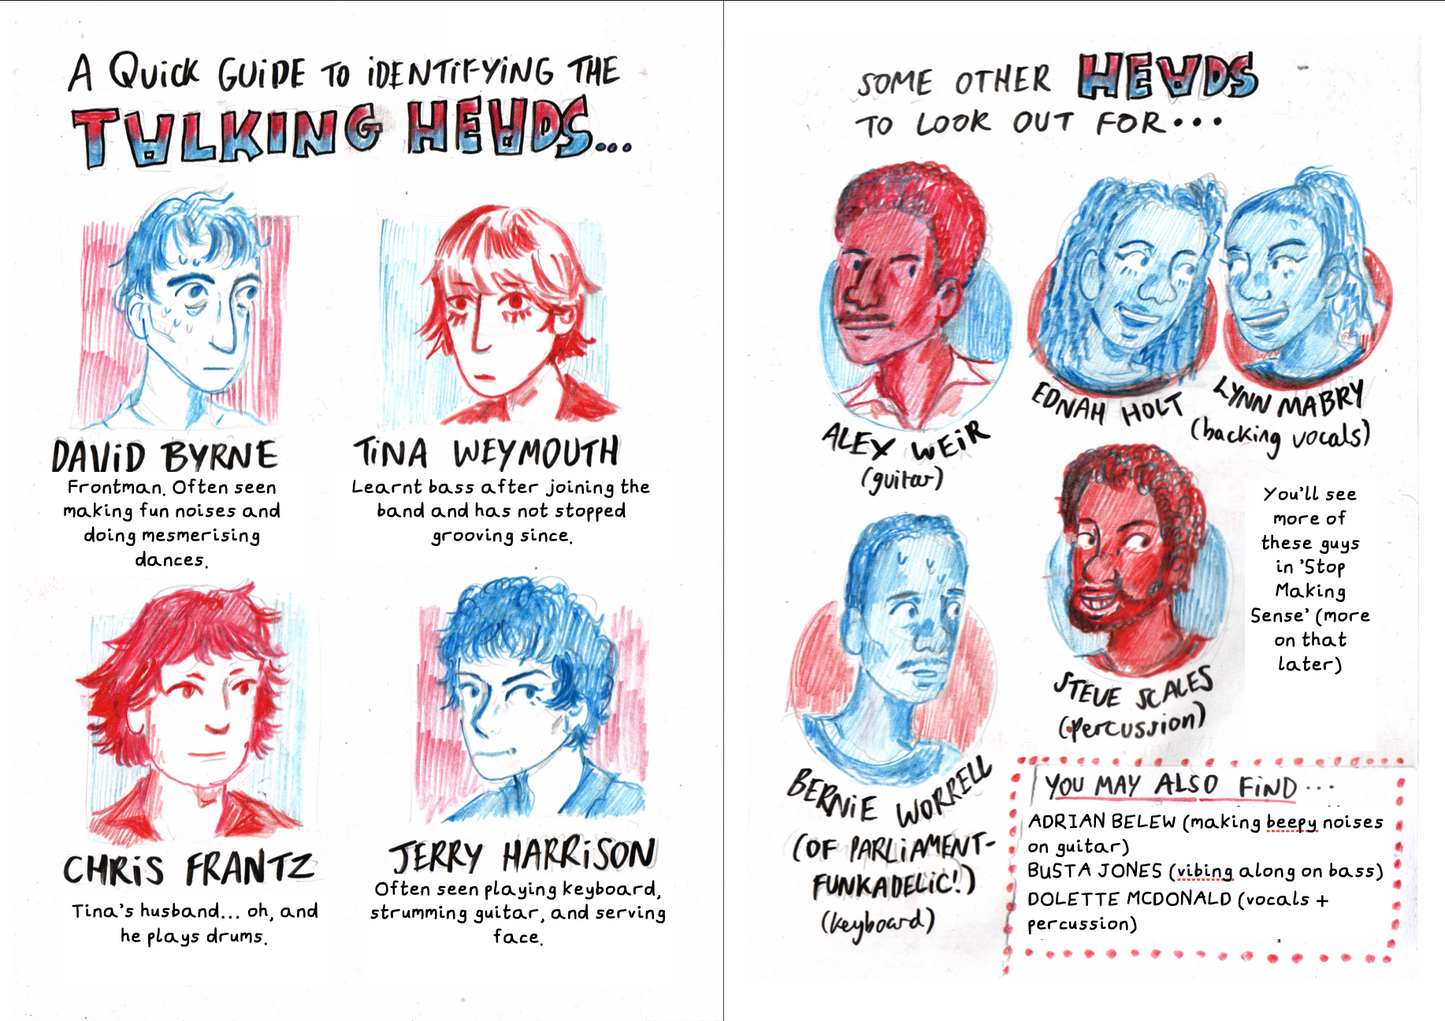 A QUICK GUIDE TO iDENTiFYiNG THE
TALKING HEADS...
DAViD BYRNE
Frontman. Often seen
making fun noises and
doing mesmerising
dances.
TiNA WEYMOUTH
Learnt bass after joining the
band and has not stopped
grooving since.
CHRiS FRANTZ
Tina's husband... oh, and
he plays drums.
JERRY HARRiSON
Often seen playing keyboard,
strumming guitar, and serving
face.
SOME OTHER HEADS
TO LOOK OUT FOR...
ALEX WEiR
(guitar)
EDNAH HOLT
LYNN MABRY
(backing vocals)
BERNiE WORRELL
(OF PARLiAMENT-
FUNKADELiC!)
(keyboard)
STEVE SCALES
(percussion)
You'll see
more of
these guys
in 'Stop
Making
Sense' (more
on that
later)
YOU MAY ALSO FiND...
ADRIAN BELEW (making beepy noises
on guitar)
BUSTA JONES (vibing along on bass)
DOLETTE MCDONALD (vocals +
percussion)